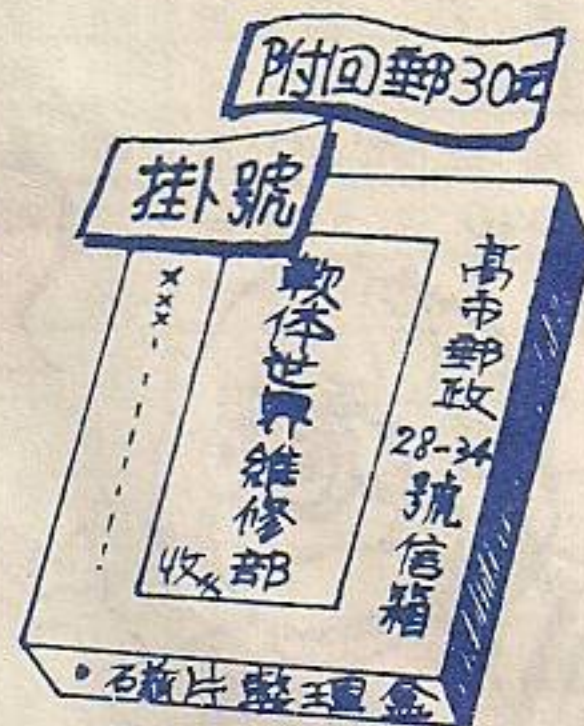 附回郵30元
掛號
高市郵政28-34號信箱
軟体世界維修部
收
×××
•磁片整理盒